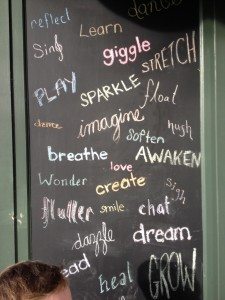 reflect Learn
Sing giggle STRETCH
PLAY SPARKLE float
dance imagine hush
soften
breathe AWAKEN
love
Wonder create sigh
flutter smile chat
dazzle dream
ead heal GROW